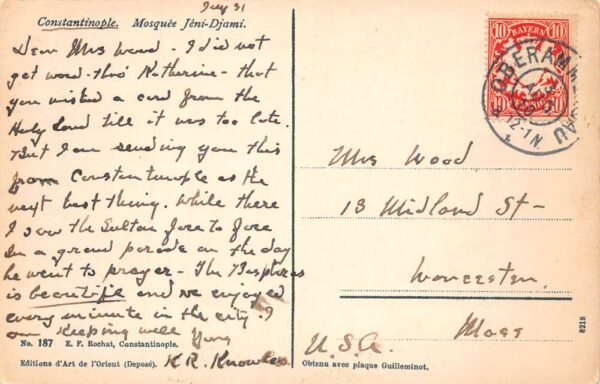 July 31
Constantinople. Mosquée Jéni-Djami.
Dear Mrs Wood - I did not
get word - thro' Katherine - that
you wished a card from the
Holy land till it was too late.
But I am sending you this
from Constantinople as the
next best thing. While there
I saw the Sultan face to face
in a grand parade on the day
he went to prayer - The Bosphorus
is beautiful and we enjoyed
every minute in the city. I
am keeping well
Yours
K. R. Knowles
No. 187 E. F. Rochat, Constantinople.
Editions d'Art de l'Orient (Deposé).
BAYERN
10 10
10 10
OBERAMMERGAU
12-1N.
Mrs Wood
13 Midland St -
Worcester.
Mass
U.S.A.
Obtenu avec plaque Guilleminot.
8218